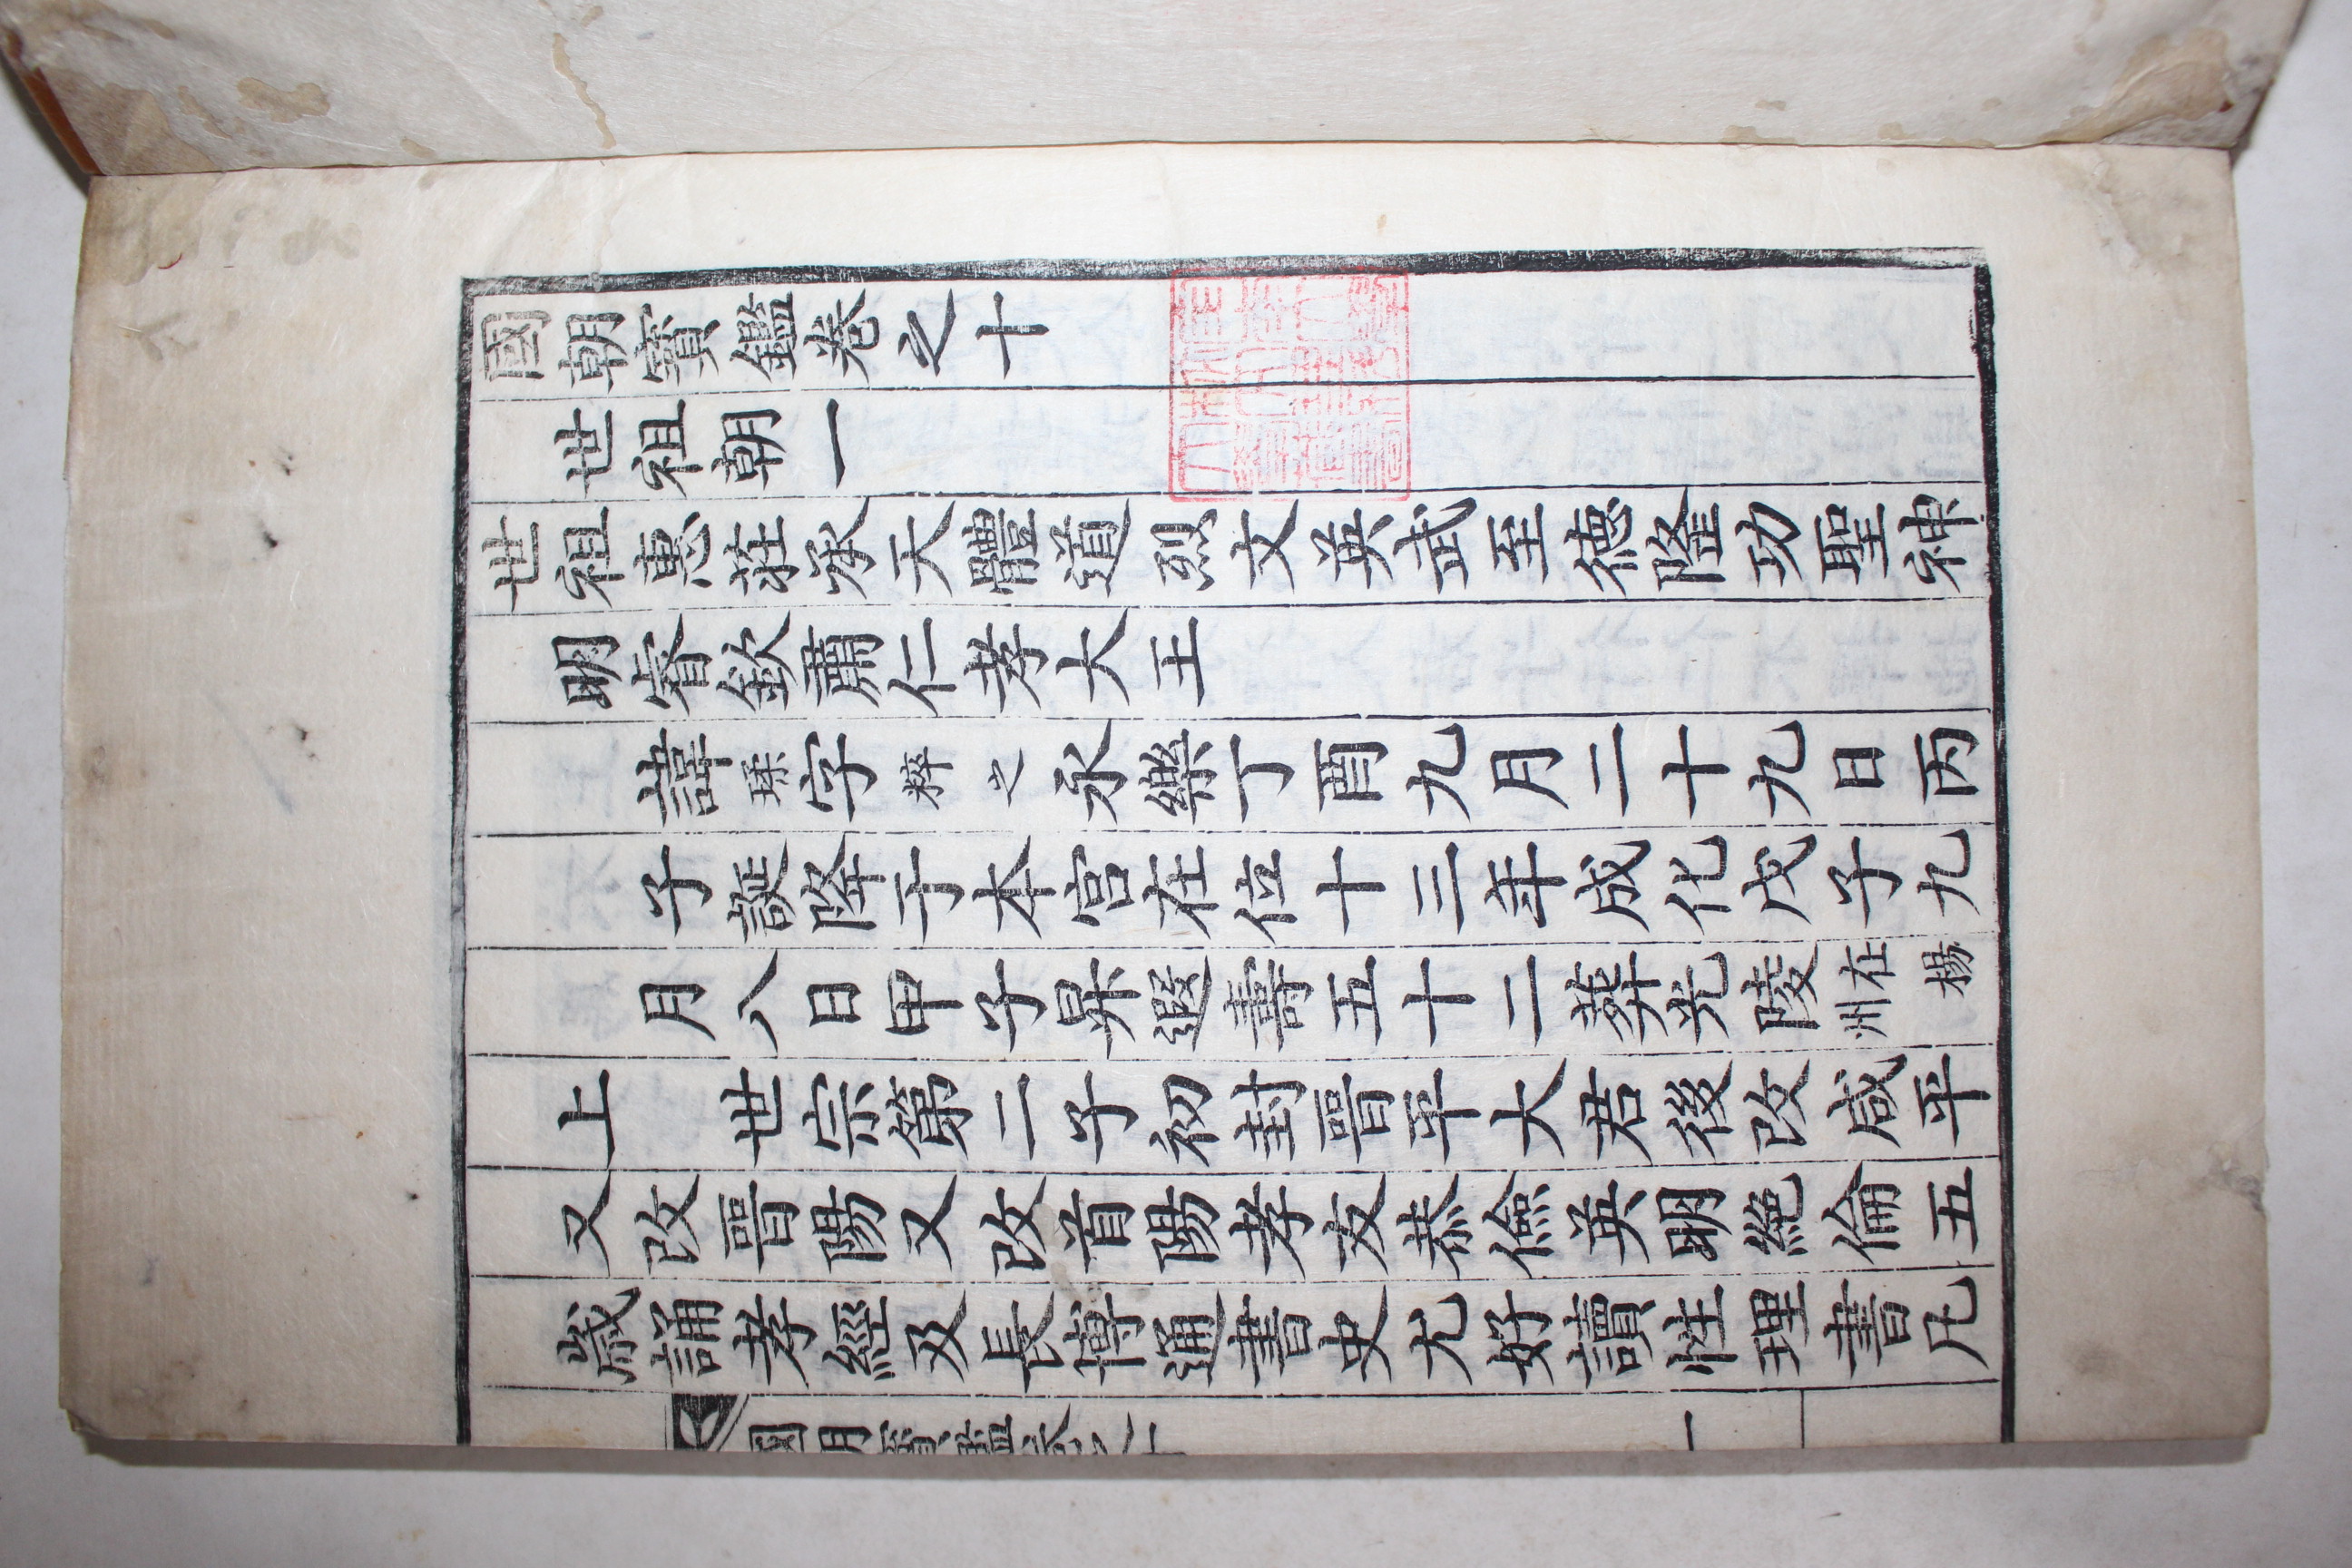 國朝寶鑑卷之十
世祖朝一
世祖惠莊承天體道烈文英武至德隆功聖神
明睿欽肅仁孝大王
諱瑈字粹之永樂丁酉九月二十九日丙
子誕降于本宮在位十三年成化戊子九
月八日甲子昇遐壽五十二葬光陵在楊州
上 世宗第二子初封晉平大君後改咸平
又改晉陽又改首陽孝友恭儉英明絶倫五
歲誦孝經及長博通書史尤好讀性理書凡
國朝寶鑑卷之十 一